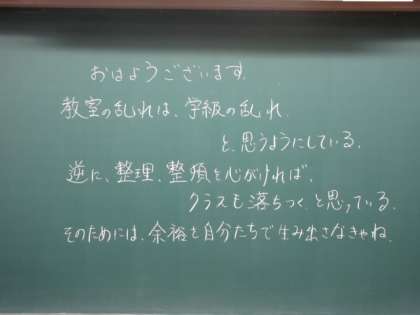 おはようございます.
教室の乱れは、学級の乱れ
と、思うようにしている.
逆に、整理、整頓を心がければ、
クラスも落ちつく、と思っている.
そのためには、余裕を自分たちで生み出さなきゃね.